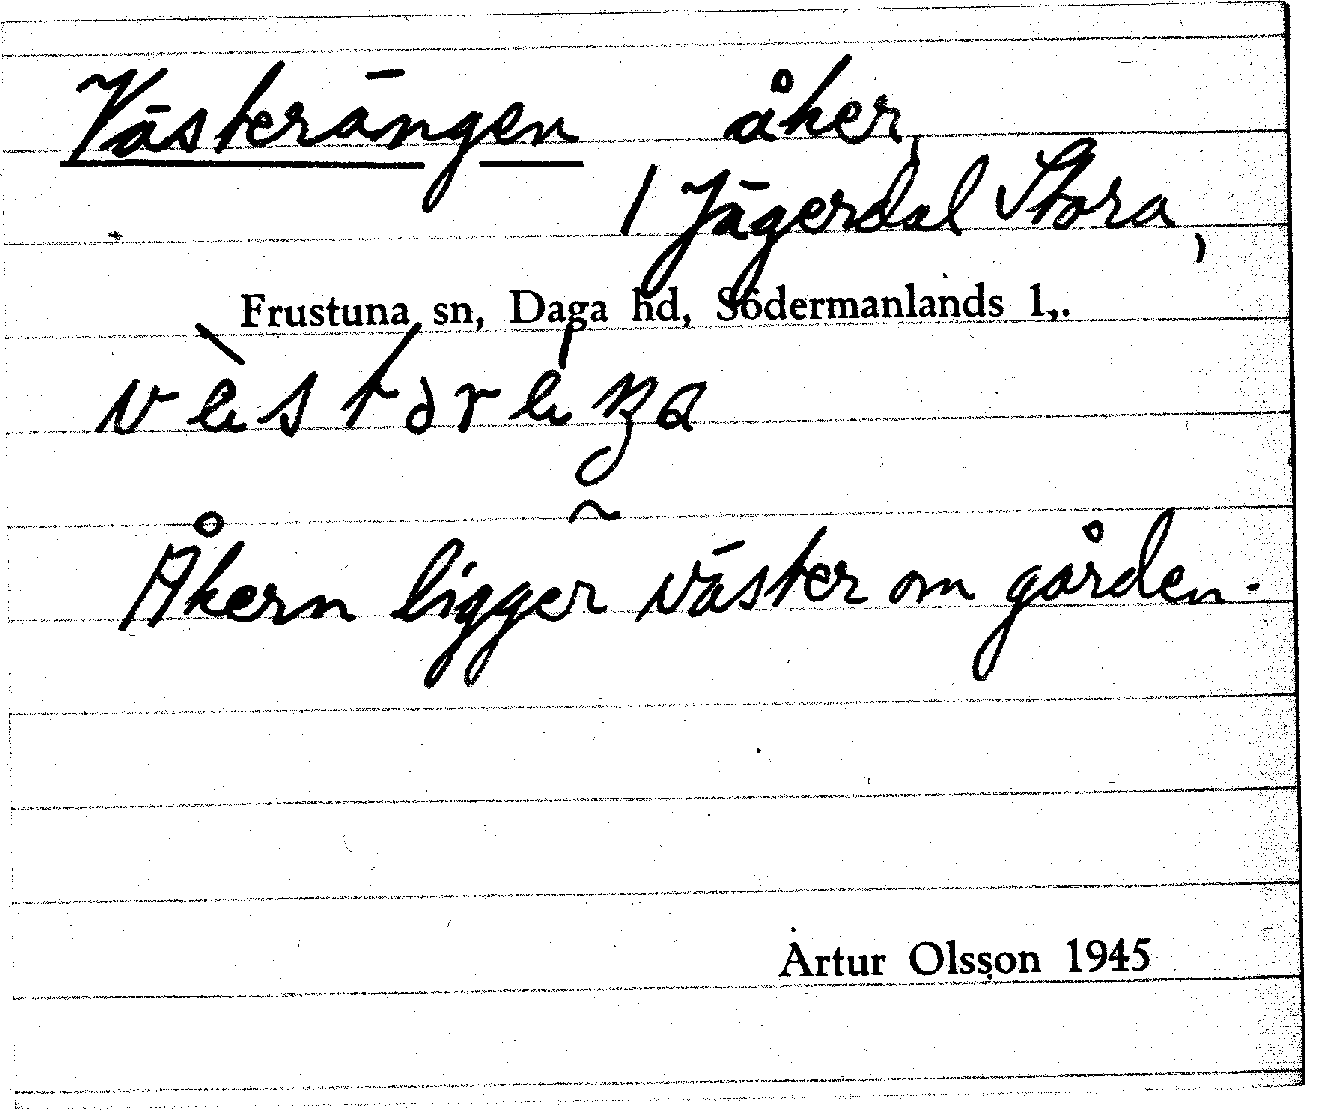 Västerängen åker,
1 Jägerdal Stora,
Frustuna sn, Daga hd, Södermanlands l,.
Åkern ligger väster om gården.
Artur Olsson 1945